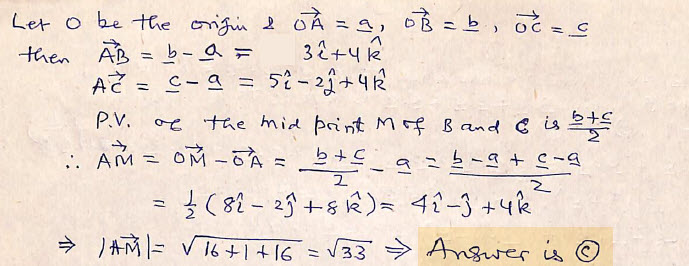 Let O be the origin & \vec{OA} = \underline{a}, \vec{OB} = \underline{b}, \vec{OC} = \underline{c}
then \vec{AB} = \underline{b} - \underline{a} = 3\hat{i} + 4\hat{k}
\vec{AC} = \underline{c} - \underline{a} = 5\hat{i} - 2\hat{j} + 4\hat{k}
P.V. of the mid point M of B and C is \frac{\underline{b} + \underline{c}}{2}
∴ \vec{AM} = \vec{OM} - \vec{OA} = \frac{\underline{b} + \underline{c}}{2} - \underline{a} = \frac{\underline{b} - \underline{a} + \underline{c} - \underline{a}}{2}
= \frac{1}{2} (8\hat{i} - 2\hat{j} + 8\hat{k}) = 4\hat{i} - \hat{j} + 4\hat{k}
⇒ |\vec{AM}| = \sqrt{16 + 1 + 16} = \sqrt{33} ⇒ Answer is ©